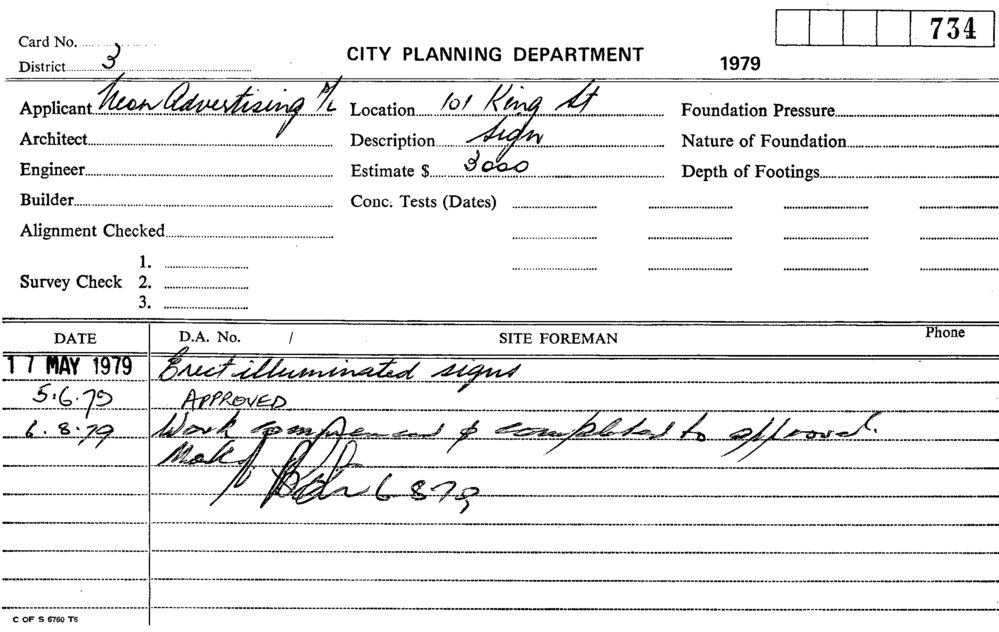 734
Card No.
District 3
CITY PLANNING DEPARTMENT
1979
Applicant Neon Advertising P/L
Location 101 King St
Foundation Pressure
Architect
Description Sign
Nature of Foundation
Engineer
Estimate $ 3000
Depth of Footings
Builder
Conc. Tests (Dates)
Alignment Checked
Survey Check
1.
2.
3.
DATE
D.A. No. /
SITE FOREMAN
Phone
17 MAY 1979 Erect illuminated signs
5.6.79 APPROVED
6.8.79 Work commenced & completed to approval.
6 8 79
C OF S 6760 T6